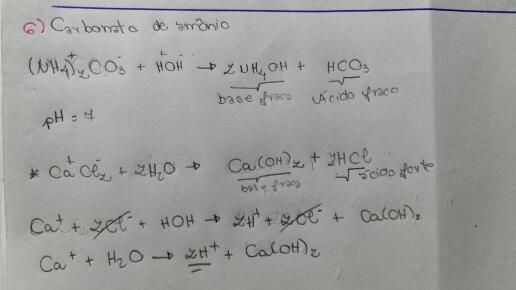 6) Carbonato de amônio
(NH4)⁺2CO3⁻ + H⁺OH⁻ → 2NH4OH + HCO3
base fraca ácido fraco
pH = 7
* Ca⁺Cl⁻2 + 2H2O → Ca(OH)2 + 2HCl
base fraca ácido forte
Ca⁺ + 2Cl⁻ + HOH → 2H⁺ + 2Cl⁻ + Ca(OH)2
Ca⁺ + H2O → 2H⁺ + Ca(OH)2